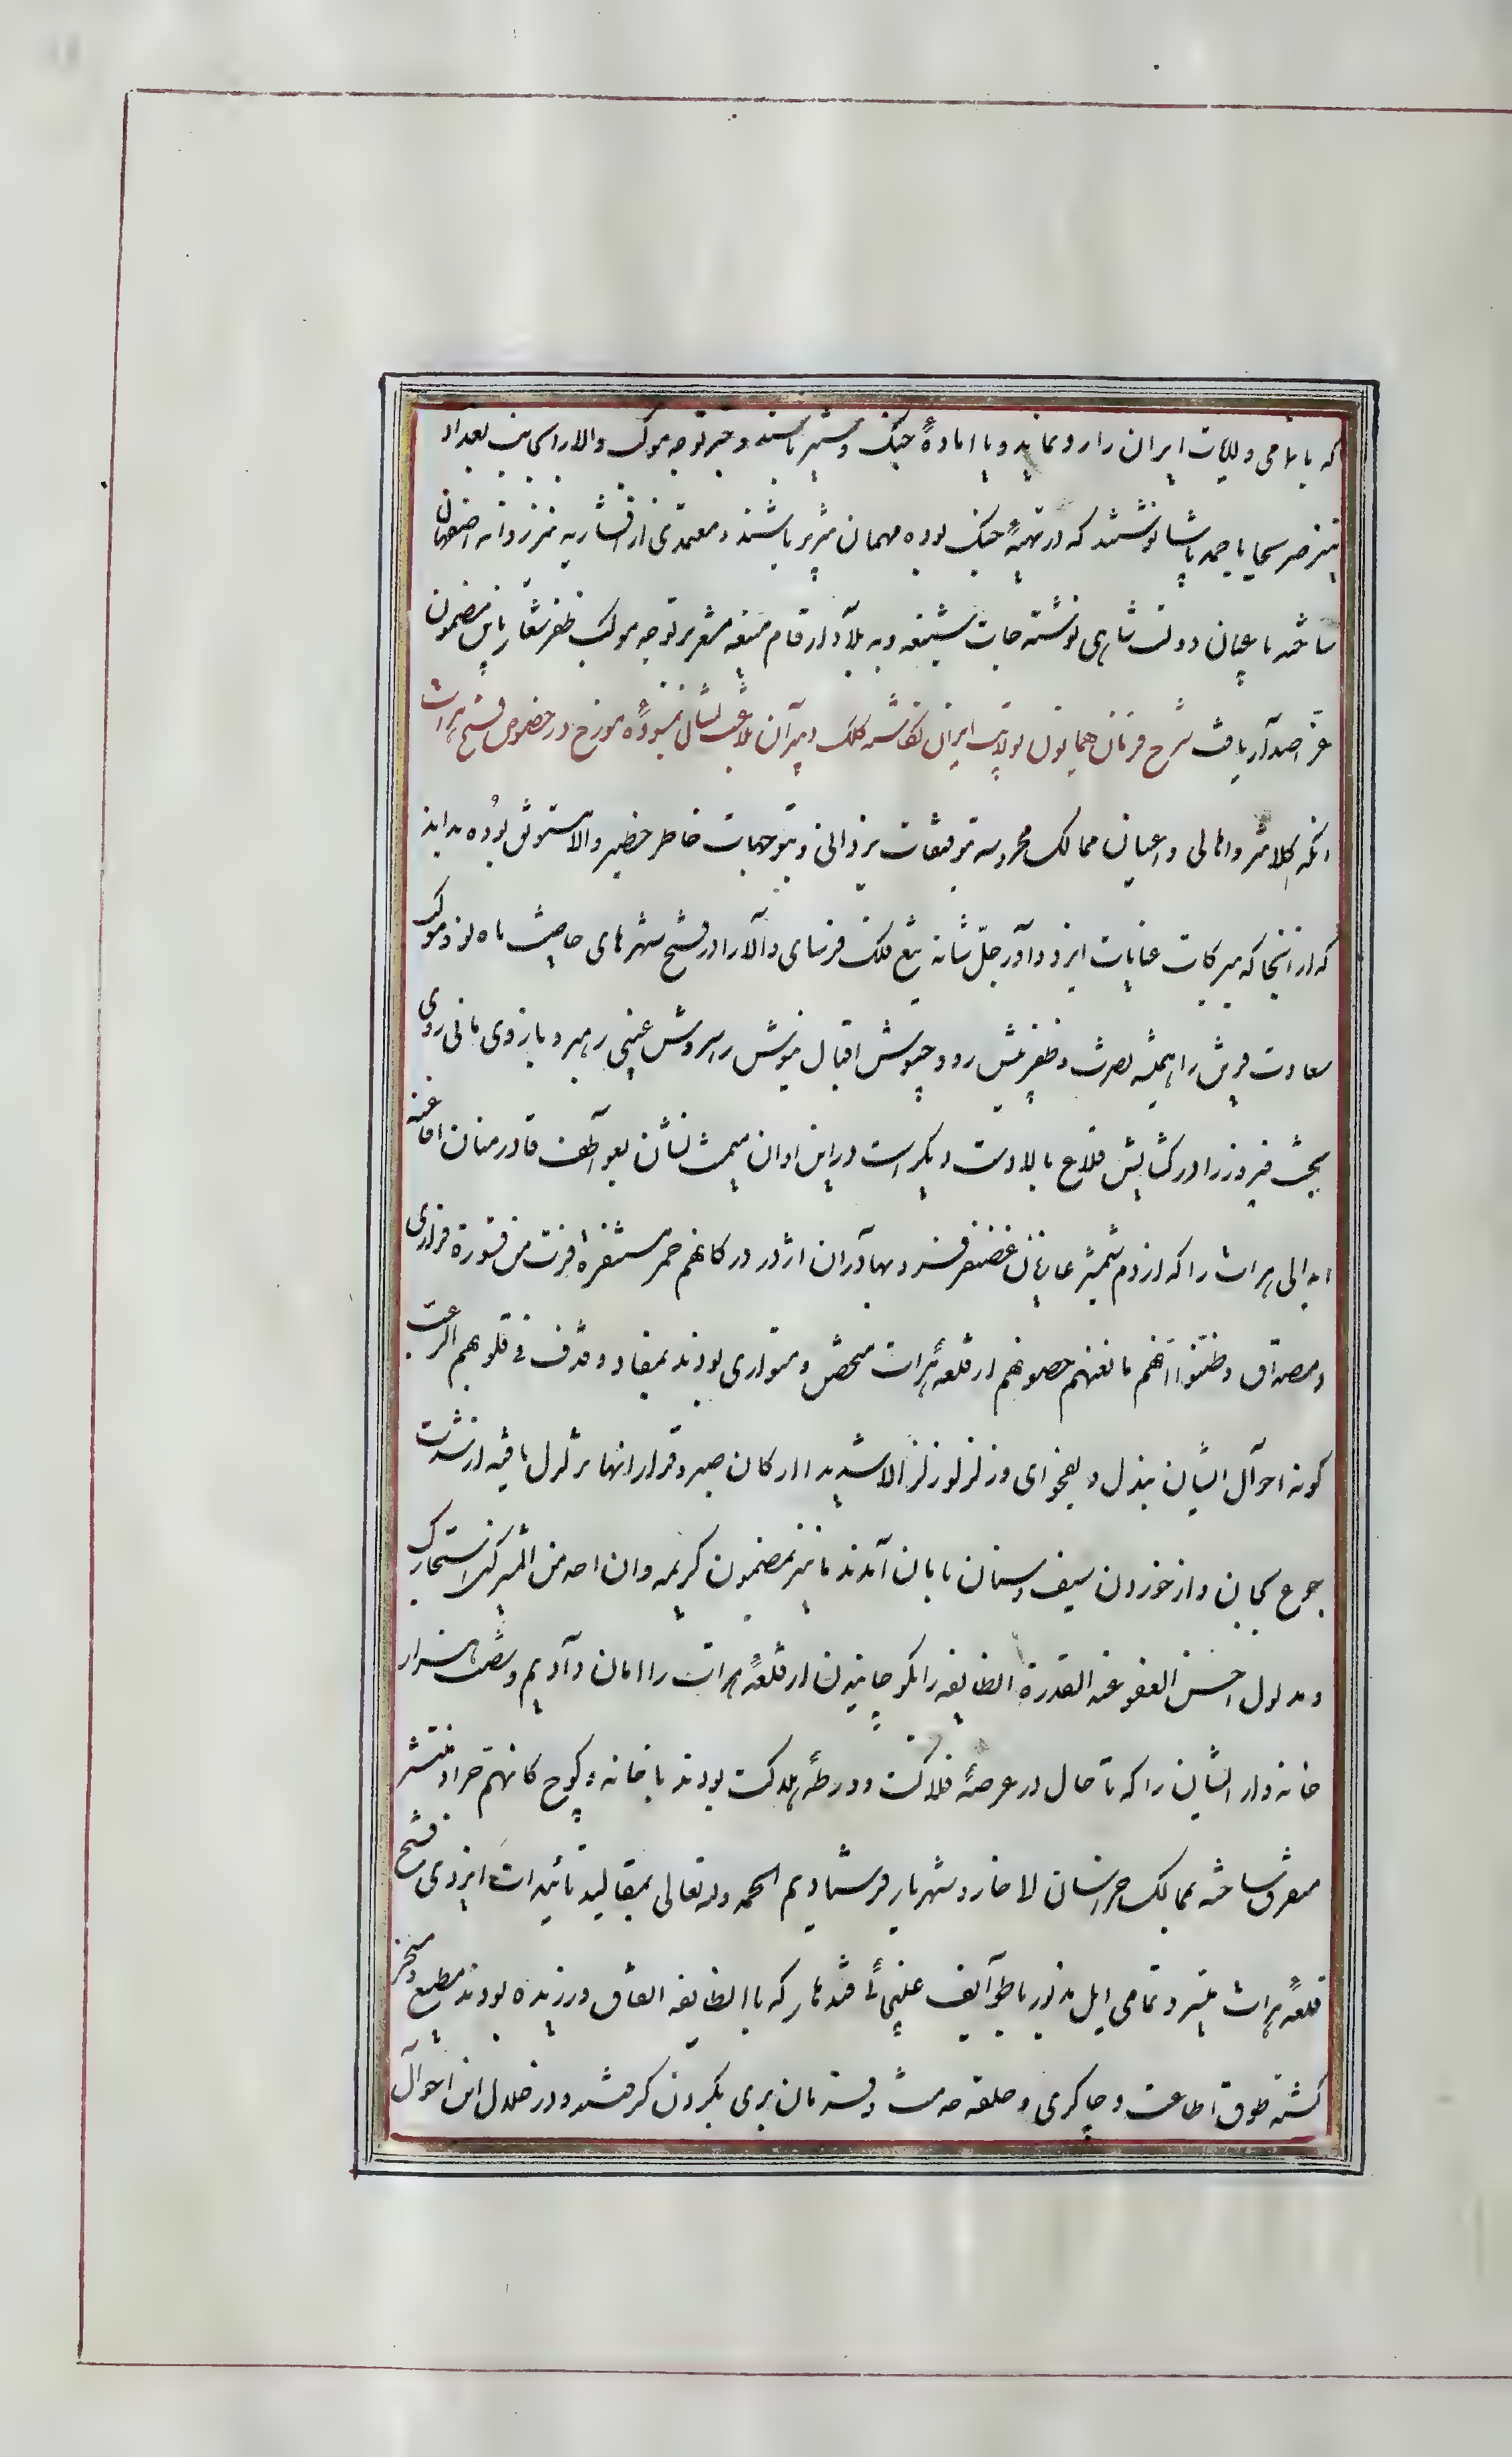 که یا تمامی ولایات ایران را رد نمایید و یا آمادهٔ جنگ و ستیز باشند و خبر توجه موکب والا را بسمت بغداد
نیز صریحا باحمد پاشا نوشتند که در تهیهٔ جنک بوده مهمان پذیر باشند و معتمدی از افشاریه نیز روانه اصفهان
ساخته باعیان دولت شاهی نوشته جات و به بلاد ارقام منیعه مشعر بر توجه موکب ظفر شعار باین مضمون
عز اصدار یافت شرح فرمان همایون بولایت ایران نگاشته کلک دبیران بلاغت نشان نمودهٔ مورخ در خصوص فتح هرات
آنکه کلانتر و اهالی و اعیان ممالک محروسه بتوفیقات یزدانی و بتوجهات خاطر خطیر والا مستوثق بوده بدانند
که از آنجا که ببرکات عنایات ایزد داور جل شانه تیغ فلک فرسای والا را در فتح شهرهای خاصیت ماه نو و موکب
سعادت قرین را همیشه نصرت و ظفر پیش رو و جیوش اقبال نیوش را سروش غیبی رهبر و بازوی مانی روی
بخت فیروز را در گشایش قلاع بالادست دیگر است در این اوان میمنت نشان بعواطف قادر منان افاغنه
ابدالی هرات را که از دم شمشیر غازیان غضنفر فر و بهادران اژدر در کانهم حمر مستنفره فرت من قسورة فراری
و بمصداق و ظنوا انهم مانعتهم حصونهم در قلعهٔ هرات متحصن و متواری بودند بمفاد و قذف فی قلوبهم الرعب
گونه احوال ایشان بتذلل و بفحوای و زلزلوا زلزالا شدیدا ارکان صبر و قرار انها تزلزل یافته از شدت
جوع بجان و از خوردن سیف و سنان بامان آمدند ما نیز بمضمون کریمه و ان احد من المشرکین استجارک
و مدلول احسن العفو عند القدرة انطایفه را کوچانیدن از قلعهٔ هرات را امان دادیم و شصت هزار
خانه وار ایشان را که تا حال در عرصهٔ فلاکت و ورطهٔ هلاکت بودند با خانه و کوچ کانهم جراد منتشر
متفرق ساخته بممالک خراسان الی خار و شهریار فرستادیم الحمد ولله تعالی بمقالید تائیدات ایزدی فتح
قلعهٔ هرات میسر و تمامی ایل مذبور با طوایف غلیجائی قندهار که با انطایفه اتفاق ورزیده بودند مطیع و مسخر
گشته طوق اطاعت و چاکری و حلقه خدمت و فرمان بری بگردن گرفتند و در خلال این احوال